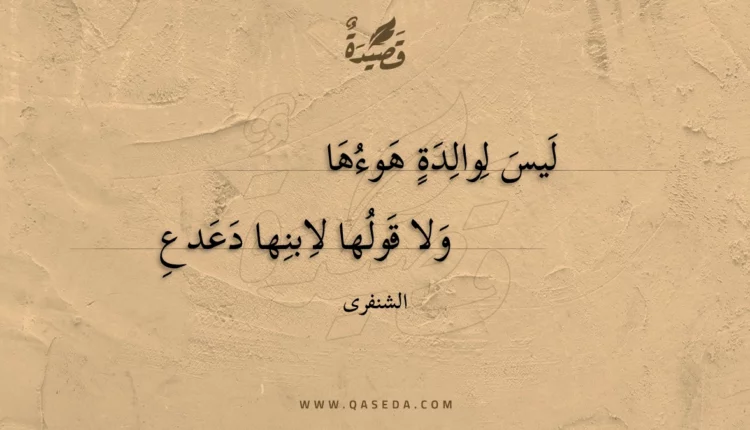 قَصِيْدَةٌ
لَيسَ لِوالِدَةٍ هَوءُهَا
وَلا قَولُها لاِبنِها دَعَدعِ
الشنفرى
WWW.QASEDA.COM